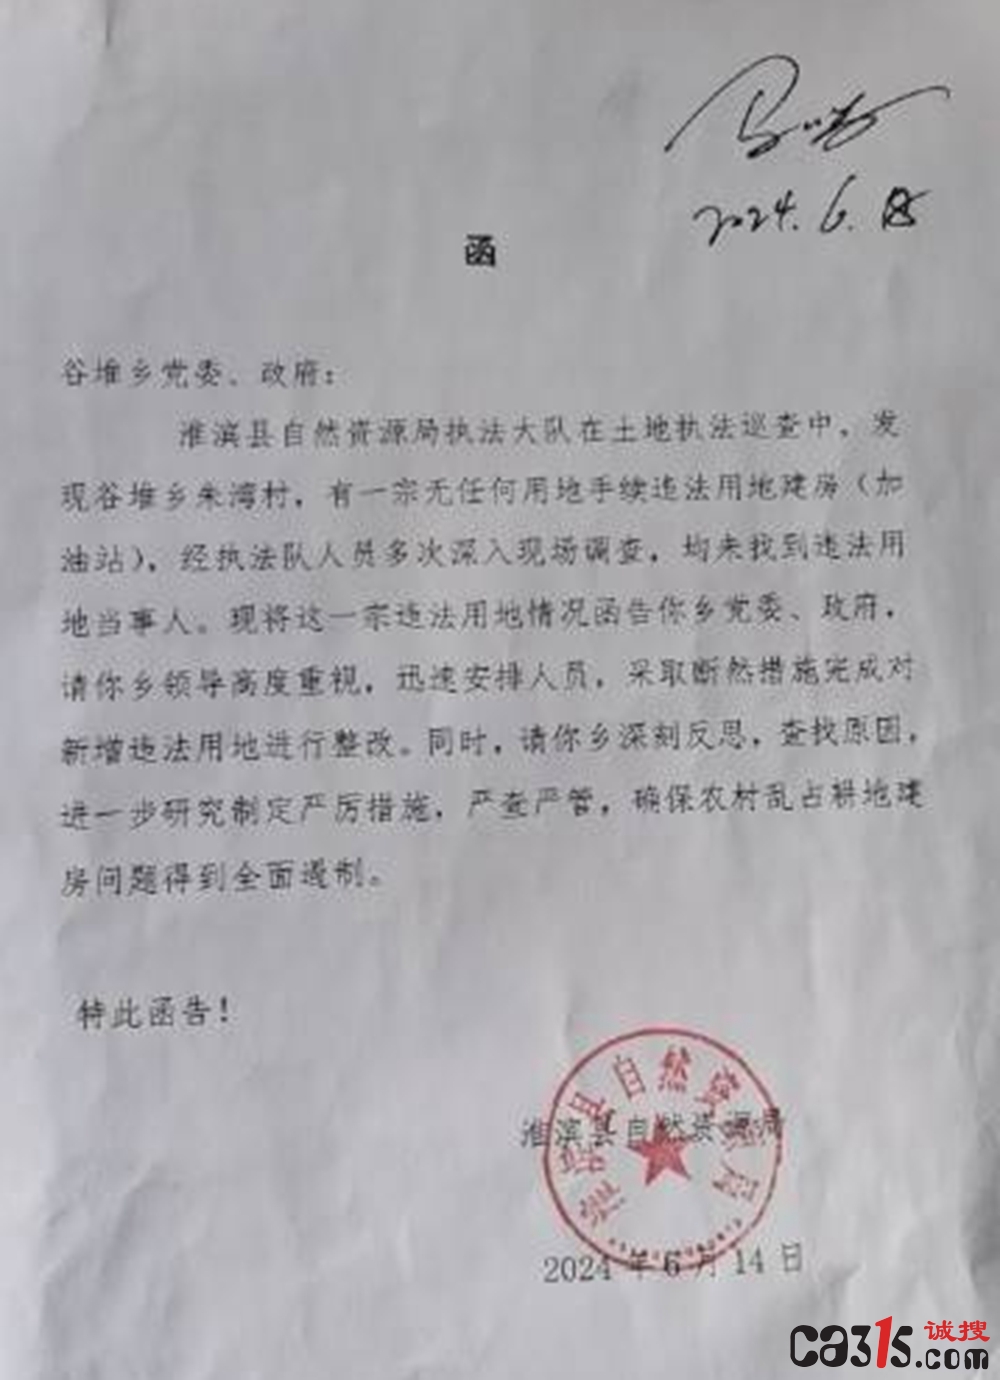 2024.6.18
函
谷堆乡党委、政府：
淮滨县自然资源局执法大队在土地执法巡查中，发
现谷堆乡朱湾村，有一宗无任何用地手续违法用地建房（加
油站），经执法队人员多次深入现场调查，均未找到违法用
地当事人。现将这一宗违法用地情况函告你乡党委、政府，
请你乡领导高度重视，迅速安排人员，采取断然措施完成对
新增违法用地进行整改。同时，请你乡深刻反思，查找原因，
进一步研究制定严厉措施，严查严管，确保农村乱占耕地建
房问题得到全面遏制。
特此函告！
淮滨县自然资源局
淮滨县自然资源局
2024年6月14日
ca315诚搜
.com